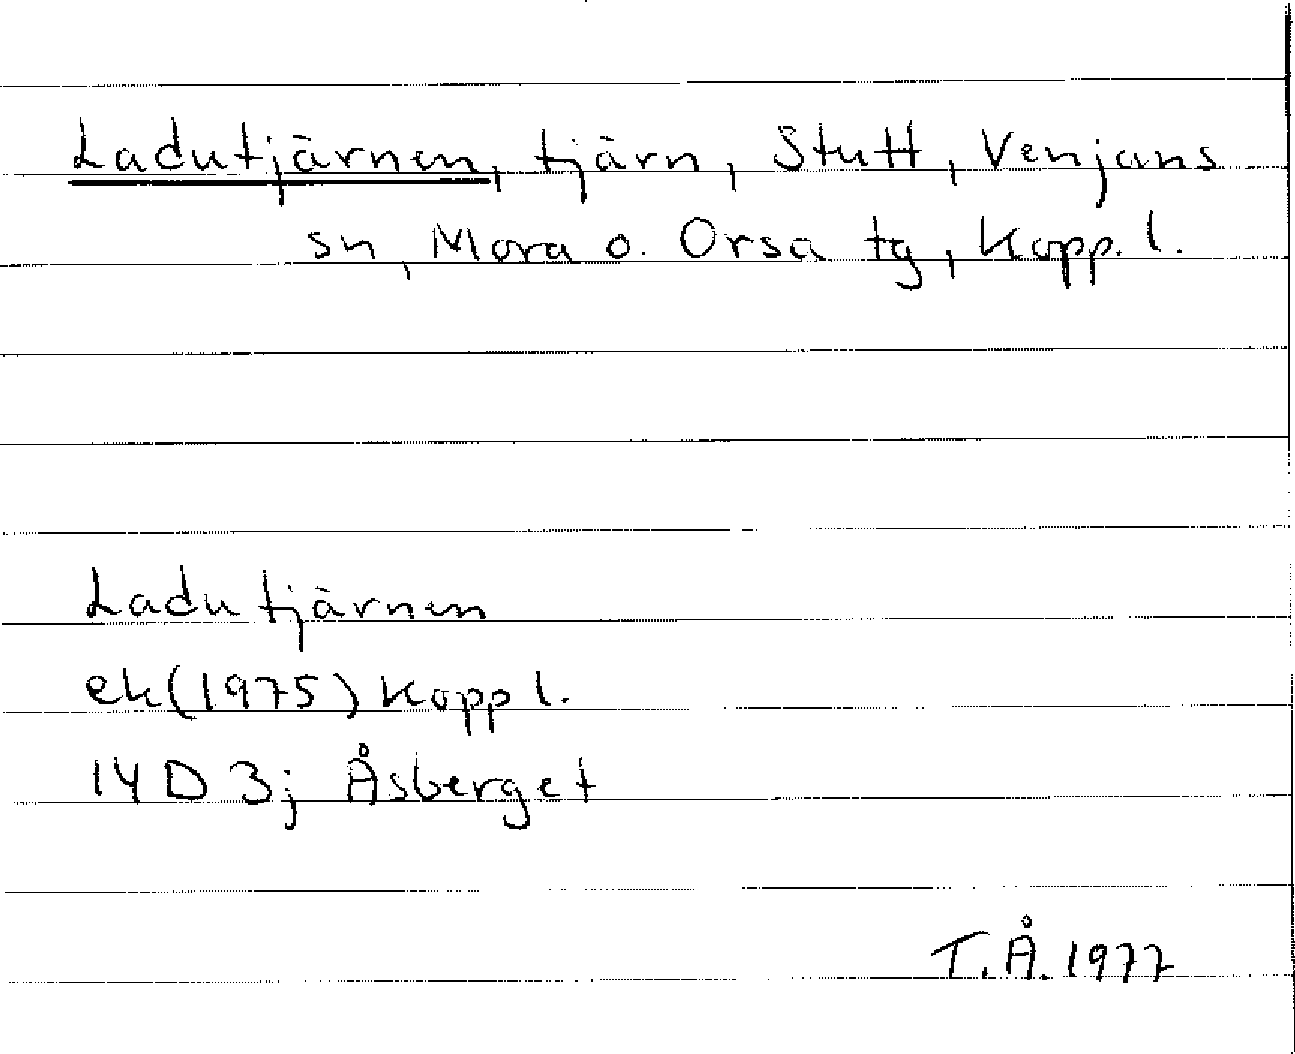 Ladutjärnen, tjärn, Stutt, Venjans
sn, Mora o. Orsa tg, Kopp. l.
Ladutjärnen
ek(1975) Kopp l.
14D 3j Åsberget
T.Å. 1977